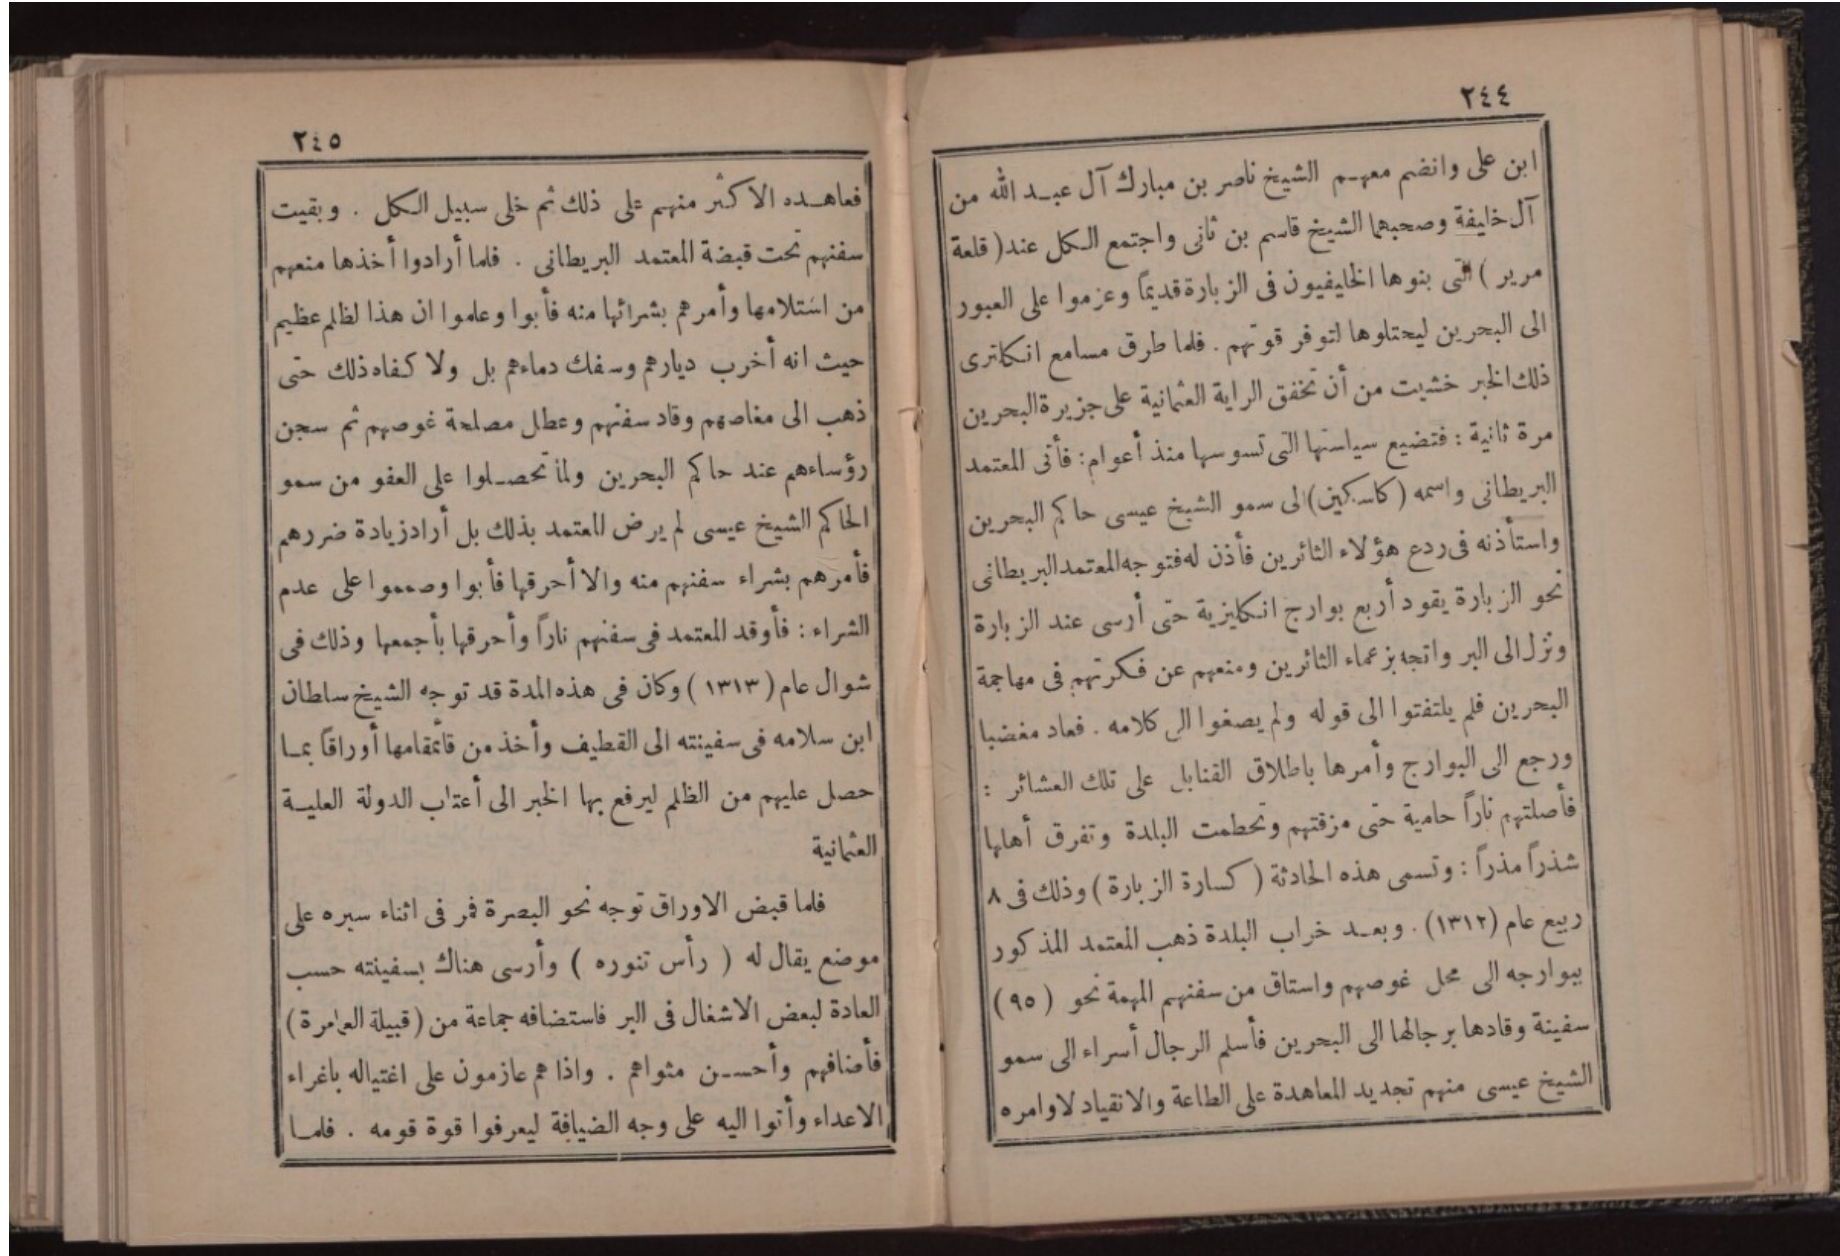 ٢٤٤
ابن على وانضم معهم الشيخ ناصر بن مبارك آل عبد الله من
آل خليفة وصحبهما الشيخ قاسم بن ثانى واجتمع الكل عند (قلعة
مرير) التى بنوها الخليفيون فى الزبارة قديماً وعزموا على العبور
الى البحرين ليحتلوها لتوفر قوتهم . فلما طرق مسامع انكلترى
ذلك الخبر خشيت من أن تخفق الراية العثمانية على جزيرة البحرين
مرة ثانية : فتضيع سياستها التى تسوسها منذ أعوام : فأتى المعتمد
البريطانى واسمه (كاسكين) الى سمو الشيخ عيسى حاكم البحرين
واستأذنه فى ردع هؤلاء الثائرين فأذن له فتوجه المعتمد البريطانى
نحو الزبارة يقود أربع بوارج انكليزية حتى أرسى عند الزبارة
ونزل الى البر واتجه بزعماء الثائرين ومنعهم عن فكرتهم فى مهاجمة
البحرين فلم يلتفتوا الى قوله ولم يصغوا الى كلامه . فعاد مغضبا
ورجع الى البوارج وأمرها باطلاق القنابل على تلك العشائر :
فأصلتهم ناراً حامية حتى مزقتهم وتحطمت البلدة وتفرق أهلها
شذراً مذراً : وتسمى هذه الحادثة (كسارة الزبارة) وذلك فى ٨
ربيع عام (١٣١٢) . وبعد خراب البلدة ذهب المعتمد المذكور
ببوارجه الى محل غوصهم واستاق من سفنهم المهمة نحو (٩٥)
سفينة وقادها برجالها الى البحرين فأسلم الرجال أسراء الى سمو
الشيخ عيسى منهم تجديد المعاهدة على الطاعة والانقياد لاوامره
٢٤٥
فعاهده الاكثر منهم على ذلك ثم خلى سبيل الكل . وبقيت
سفنهم تحت قبضة المعتمد البريطانى . فلما أرادوا أخذها منعهم
من استلامها وأمرهم بشرائها منه فأبوا وعلموا ان هذا لظلم عظيم
حيث انه أخرب ديارهم وسفك دماءهم بل ولا كفاه ذلك حتى
ذهب الى مغاصهم وقاد سفنهم وعطل مصلحة غوصهم ثم سجن
رؤساءهم عند حاكم البحرين ولما تحصلوا على العفو من سمو
الحاكم الشيخ عيسى لم يرض المعتمد بذلك بل أراد زيادة ضررهم
فأمرهم بشراء سفنهم منه والا أحرقها فأبوا وصمموا على عدم
الشراء : فأوقد المعتمد فى سفنهم ناراً وأحرقها بأجمعها وذلك فى
شوال عام (١٣١٣) وكان فى هذه المدة قد توجه الشيخ سلطان
ابن سلامه فى سفينته الى القطيف وأخذ من قائمقامها أوراقاً بما
حصل عليهم من الظلم ليرفع بها الخبر الى أعتاب الدولة العلية
العثمانية
فلما قبض الاوراق توجه نحو البصرة فمر فى اثناء سيره على
موضع يقال له ( رأس تنوره ) وأرسى هناك بسفينته حسب
العادة لبعض الاشغال فى البر فاستضافه جماعة من (قبيلة العمامرة)
فأضافهم وأحسن مثواهم . واذا هم عازمون على اغتياله باغراء
الاعداء وأتوا اليه على وجه الضيافة ليعرفوا قوة قومه . فلما